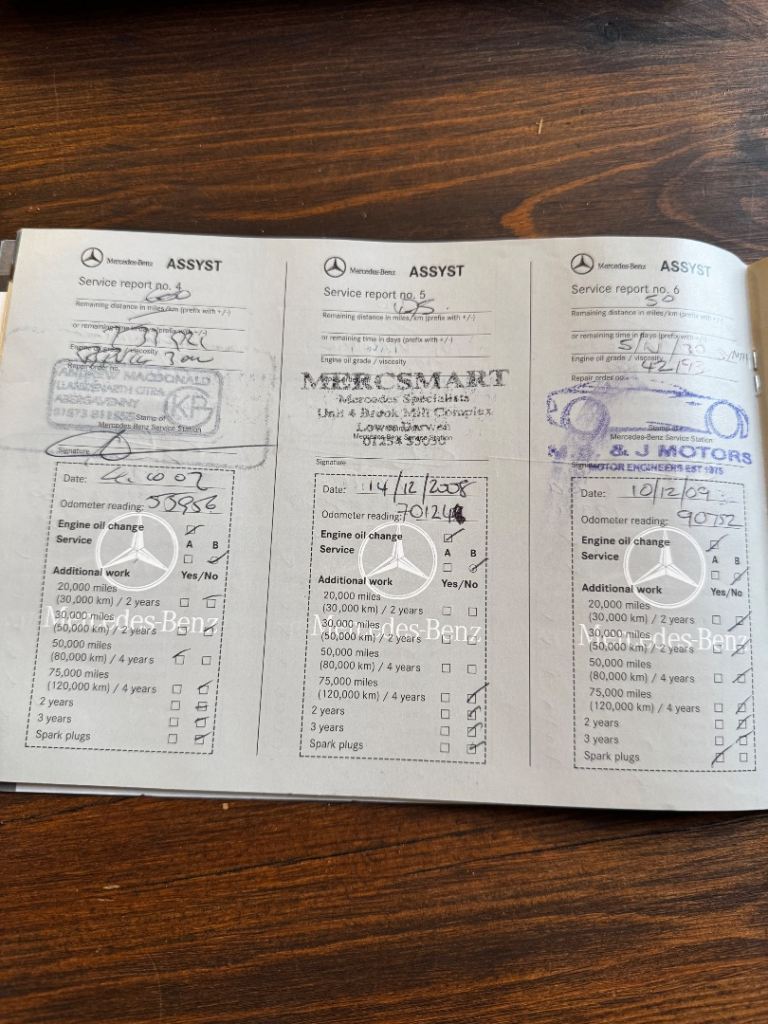 Mercedes-Benz ASSYST
Service report no. 4
600
Remaining distance in miles/km (prefix with +/-)
or remaining time in days (prefix with +/-)
Engine oil grade / viscosity
Repair order no.
MACDONALD
LLANWENARTH CITRA
ABERGAVENNY
Stamp of
Mercedes-Benz Service Station
Signature
Date:
Odometer reading: 53956
Engine oil change
Service A B
Additional work Yes/No
20,000 miles
(30,000 km) / 2 years
30,000 miles
(50,000 km) / 2 years
50,000 miles
(80,000 km) / 4 years
75,000 miles
(120,000 km) / 4 years
2 years
3 years
Spark plugs
Mercedes-Benz
Mercedes-Benz ASSYST
Service report no. 5
Remaining distance in miles/km (prefix with +/-)
or remaining time in days (prefix with +/-)
Engine oil grade / viscosity
MERCSMART
Mercedes Specialists
Unit 4 Brook Mill Complex
Lower Darwen
Mercedes-Benz Service Station
Signature
Date: 14/12/2008
Odometer reading: 70124
Engine oil change
Service A B
Additional work Yes/No
20,000 miles
(30,000 km) / 2 years
30,000 miles
(50,000 km) / 2 years
50,000 miles
(80,000 km) / 4 years
75,000 miles
(120,000 km) / 4 years
2 years
3 years
Spark plugs
Mercedes-Benz
Mercedes-Benz ASSYST
Service report no. 6
50
Remaining distance in miles/km (prefix with +/-)
or remaining time in days (prefix with +/-)
Engine oil grade / viscosity
42193
Repair order no.
Stamp of
Mercedes-Benz Service Station
& J MOTORS
MOTOR ENGINEERS EST 1975
Date: 10/12/09
Odometer reading: 90752
Engine oil change
Service A B
Additional work Yes/No
20,000 miles
(30,000 km) / 2 years
30,000 miles
(50,000 km) / 2 years
50,000 miles
(80,000 km) / 4 years
75,000 miles
(120,000 km) / 4 years
2 years
3 years
Spark plugs
Mercedes-Benz